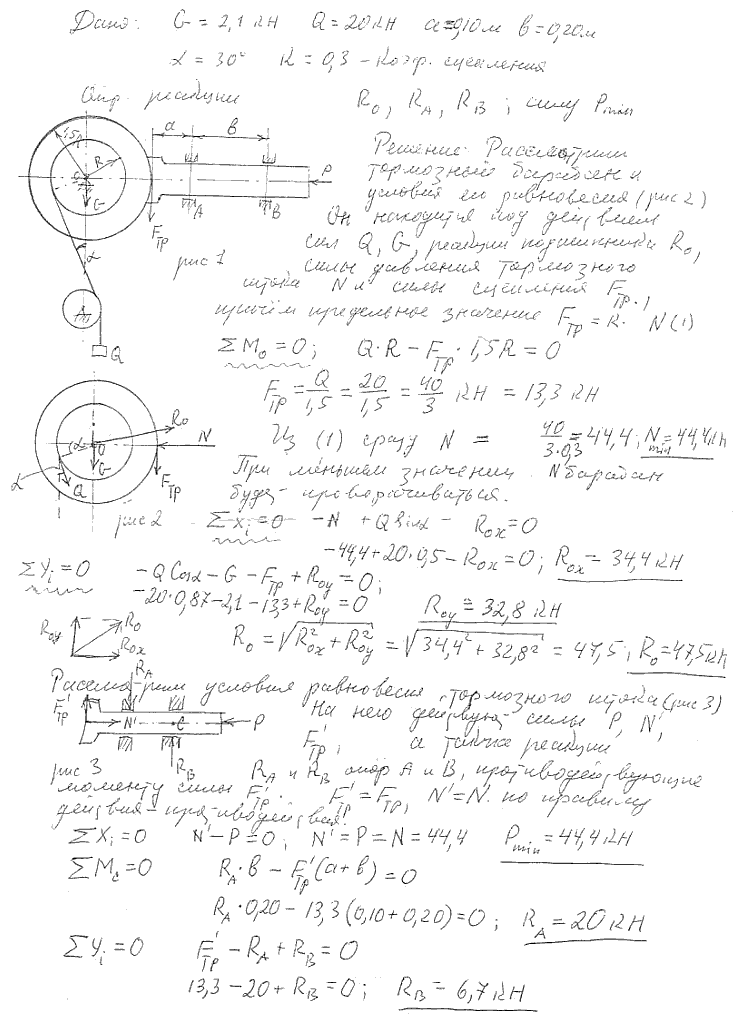 Дано: G = 2,1 кН Q = 20 кН a = 0,10 м в = 0,20 м
α = 30° K = 0,3 - коэф. сцепления
Опр. реакции R₀, R_A, R_B ; силу P min
1,5R
R
a
в
O
G
A
B
P
F тр
α
рис 1
Q
Решение: Рассмотрим
тормозной барабан и
условия его равновесия (рис 2)
Он находится под действием
сил Q, G, реакции подшипника R₀,
силы давления тормозного
штока N и силы сцепления F тр.,
причём предельное значение F тр = K · N (1)
ΣM₀ = 0; Q·R − F тр · 1,5R = 0
F тр = Q/1,5 = 20/1,5 = 40/3 кН = 13,3 кН
Из (1) сразу N = 40/3·0,3 = 44,4; N min = 44,4 кН
При меньшем значении N барабан
будет проворачиваться.
R₀
N
α
O
G
F тр
α
Q
рис 2
ΣXi = 0 −N + Q sinα − Rox = 0
−44,4 + 20·0,5 − Rox = 0; Rox = 34,4 кН
ΣYi = 0 −Q Cosα − G − F тр + Roy = 0;
−20·0,87 − 2,1 − 13,3 + Roy = 0 Roy = 32,8 кН
Roy
R₀
Rox
R₀ = √R²ox + R²oy = √34,4² + 32,8² = 47,5; R₀ = 47,5 кН
Рассмотрим условия равновесия тормозного штока (рис 3)
R_A
F' тр
N'
C
P
R_B
рис 3
На него действуют силы P, N',
F' тр, а также реакции
R_A и R_B опор A и B, противодействующие
моменту силы F' тр. F' тр = F тр, N' = N по правилу
действия - противодействия.
ΣXi = 0 N' − P = 0; N' = P = N = 44,4 P min = 44,4 кН
ΣMc = 0 R_A · в − F' тр (a + в) = 0
R_A · 0,20 − 13,3 (0,10 + 0,20) = 0; R_A = 20 кН
ΣYi = 0 F' тр − R_A + R_B = 0
13,3 − 20 + R_B = 0; R_B = 6,7 кН